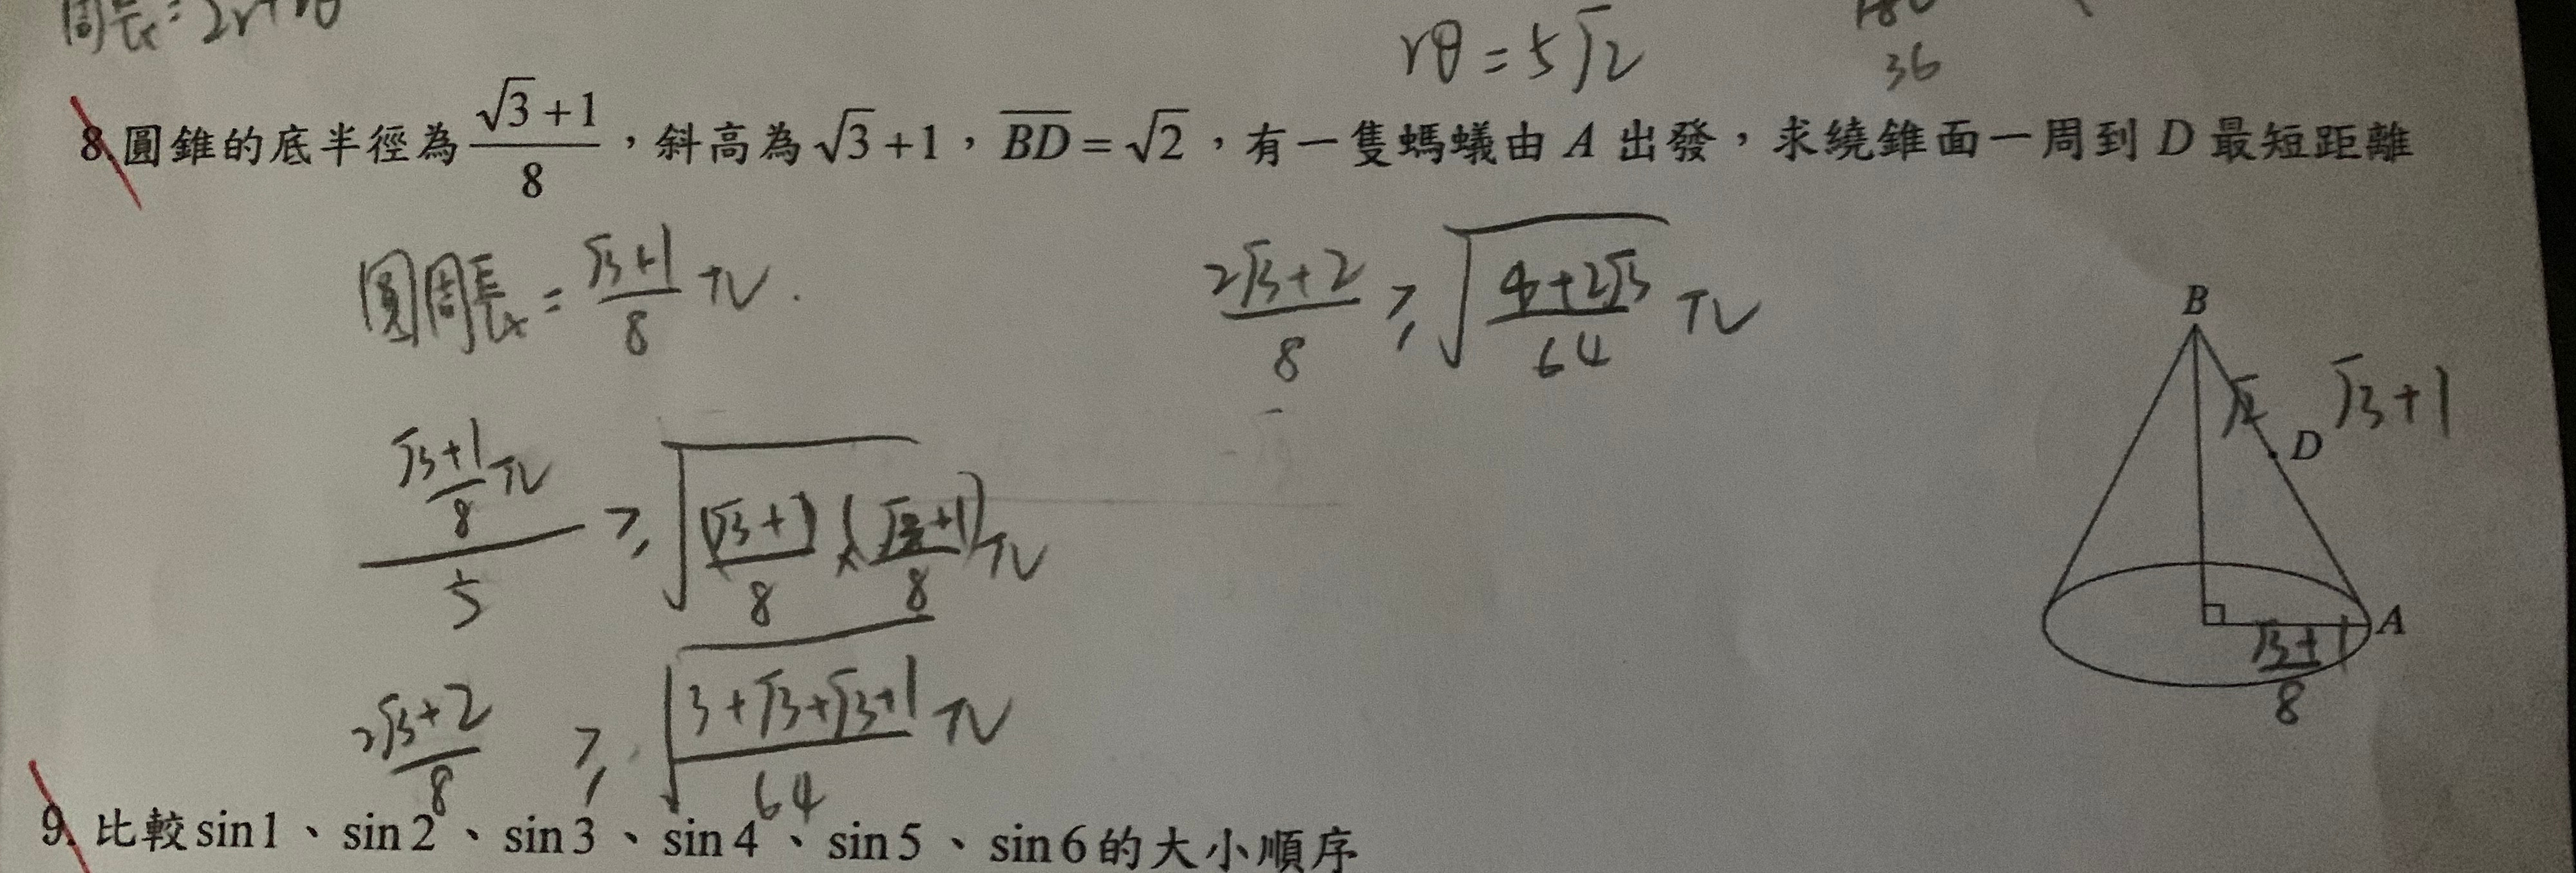 周長=2r+rθ
rθ=5√2
180
36
8. 圓錐的底半徑為 (√3+1)/8，斜高為 √3+1，BD=√2，有一隻螞蟻由 A 出發，求繞錐面一周到 D 最短距離
圓周長=(√3+1)/8 π.
(2√3+2)/8 ≥ √((4+2√3)/64) π
B
√2
√3+1
D
((√3+1)/8 π)/5 ≥ √((√3+1)/8 × (√3+1)/8) π
A
(√3+1)/8
(2√3+2)/8 ≥ √((3+√3+√3+1)/64) π
9. 比較 sin1、sin2、sin3、sin4、sin5、sin6 的大小順序